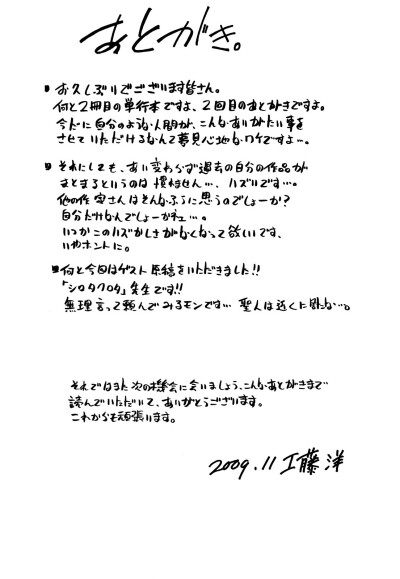 あとがき。
■お久しぶりでございます皆さん。
何と2冊目の単行本ですよ、2回目のあとがきですよ。
今だに自分のような人間が、こんなありがたい事を
させていただけるなんて夢見心地なワケですよ…。
■それにしても、あい変わらず過去の自分の作品が
まとまるというのは慣れません…、ハズいです…。
他の作家さんはそんなふうに思うのでしょーか?
自分だけなんでしょーかネェ…。
いつかこのハズかしさがなくなって欲しいです、
いやホントに。
■何と今回はゲスト原稿をいただきました!!
「シロタクロタ」先生です!!
無理言って頼んでみるモンです… 聖人は近くに居たい…。
それではまた次の機会に会いましょう、こんなあとがきまで
読んでいただいて、ありがとうございます。
これからも頑張ります。
2009.11 工藤洋